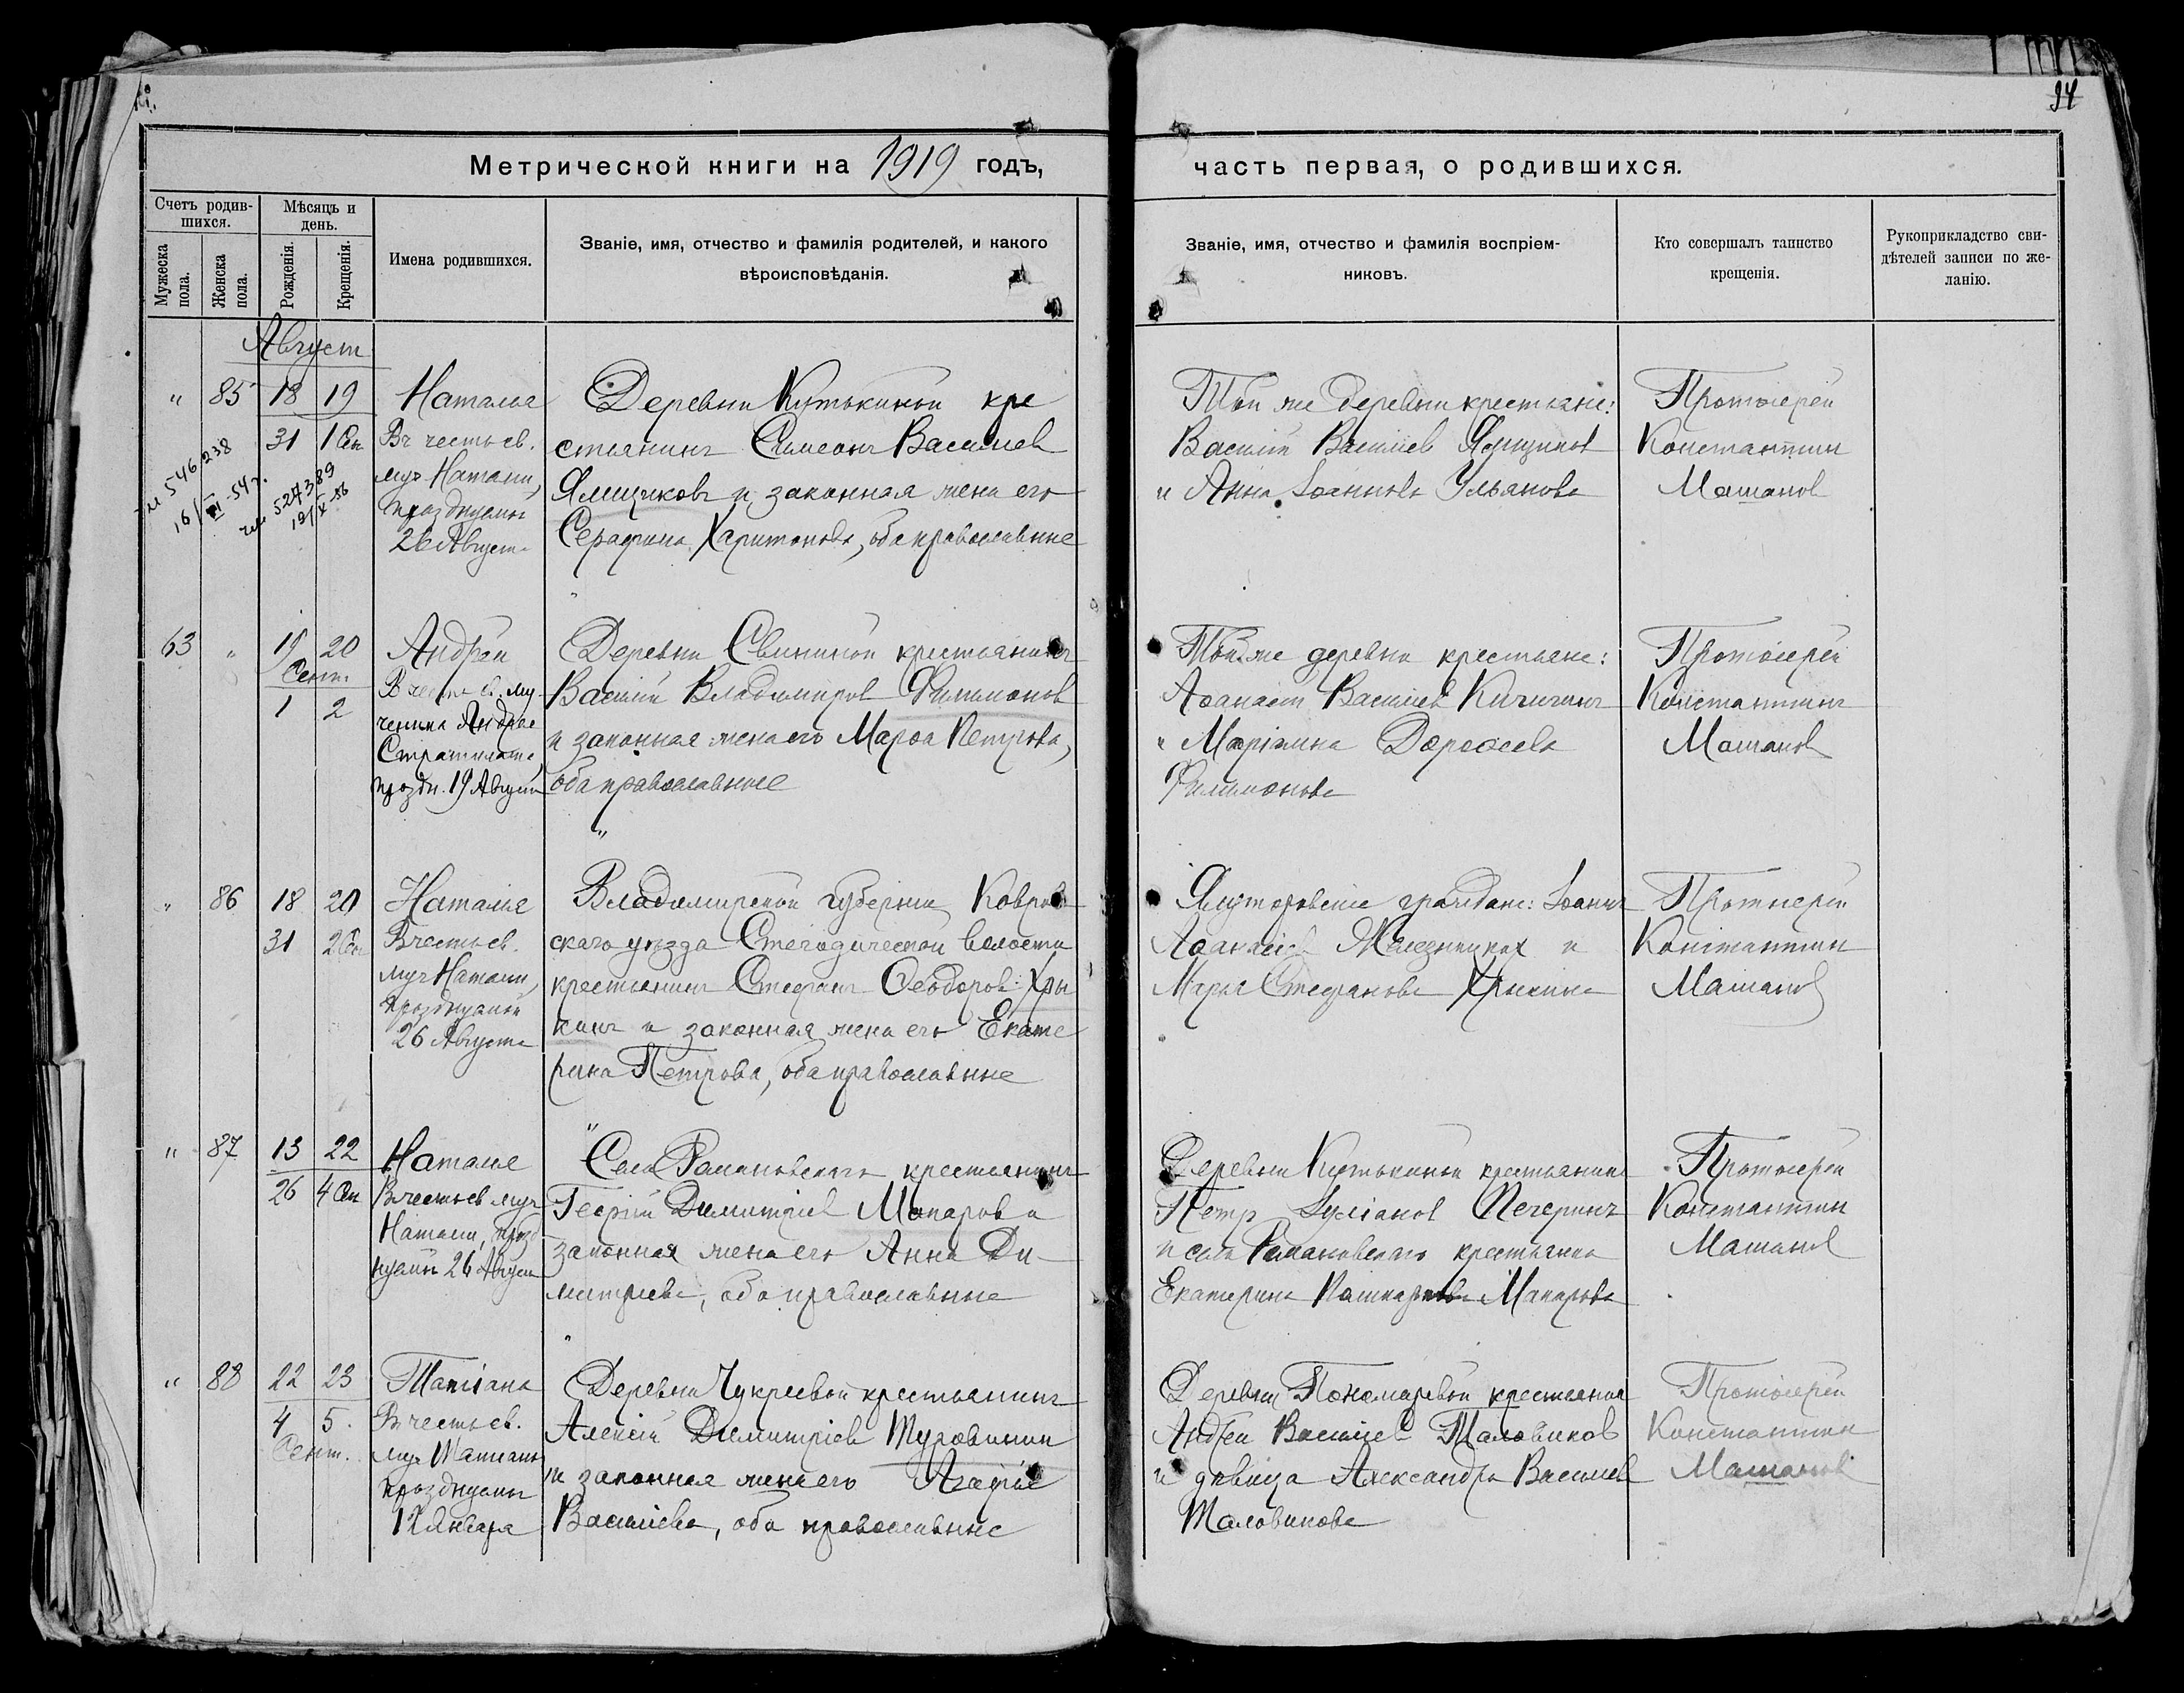 94
Метрической книги на 1919 годъ,
часть первая, о родившихся.
Счетъ родив-
шихся.
Мѣсяцъ и
день.
Мужеска
пола.
Женска
пола.
Рожденія.
Крещенія.
Имена родившихся.
Званіе, имя, отчество и фамилія родителей, и какого
вѣроисповѣданія.
Званіе, имя, отчество и фамилія воспріем-
никовъ.
Кто совершалъ таинство
крещенія.
Рукоприкладство сви-
дѣтелей записи по же-
ланію.
Август
" 85 18 19
31 1 Сен
546238
16/XI-54 г.
527389
19/X-56
Наталія
Въ честь св.
муч. Наталіи,
празднуемой
26 Августа
Деревни Кутькиной кре
стьянинъ Симеонъ Васильев
Ямщиковъ и законная жена его
Серафима Харитонова, оба православные
Той же деревни крестьяне:
Василій Васильев Ямщиков
и Анна Іоаннова Ульянова
Протоіерей
Константин
Машанов
63 " 19 20
Сент.
1 2
Андрей
В честь св. му-
ченика Андрея
Стратилата,
праздн. 19 Августа
Деревни Свининой крестьянинъ
Василій Владимиров Филимонов
и законная жена его Марѳа Петрова,
оба православные
Той же деревни крестьяне:
Аѳанасій Васильев Кичигинъ
и Маріамна Дороѳеева
Филимонова
Протоіерей
Константинъ
Машанов
" 86 18 20
31 2 Сен
Наталія
В честь св.
муч Наталіи,
празднуемой
26 Августа
Владимирской губерніи Ковров
скаго уѣзда волости
крестьянинъ Стефанъ Ѳеодоров Хры
кинъ и законная жена его Екате
рина Петрова, оба православные
Ялуторовскіе граждане: Іоаннъ
Аѳанасіев и
Марія Стефанова Хрыкина
Протоіерей
Константин
Машанов
" 87 13 22
26 4 Сен
Наталія
В честь св муч
Наталіи, празд
нуемой 26 Августа
Села Романовскаго крестьянинъ
Георгій Димитріев Макаров и
законная жена его Анна Ди-
митріева, оба православные
Деревни Кутькиной крестьянинъ
Петр Іуліанов Печеринъ
и села Романовскаго крестьянка
Екатерина Макарова
Протоіерей
Константин
Машанов
" 88 22 23
4 5
Сент.
Татіана
В честь св.
муч Татіаны
празднуемой
12 Января
Деревни Чукреевой крестьянинъ
Алексій Димитріев Туровинин
и законная жена его Агафія
Васильева, оба православные
Деревни Пономаревой крестьянин
Андрей Васильев Маловиков
и дѣвица Александра Васильев
Маловикова
Протоіерей
Константин
Машанов